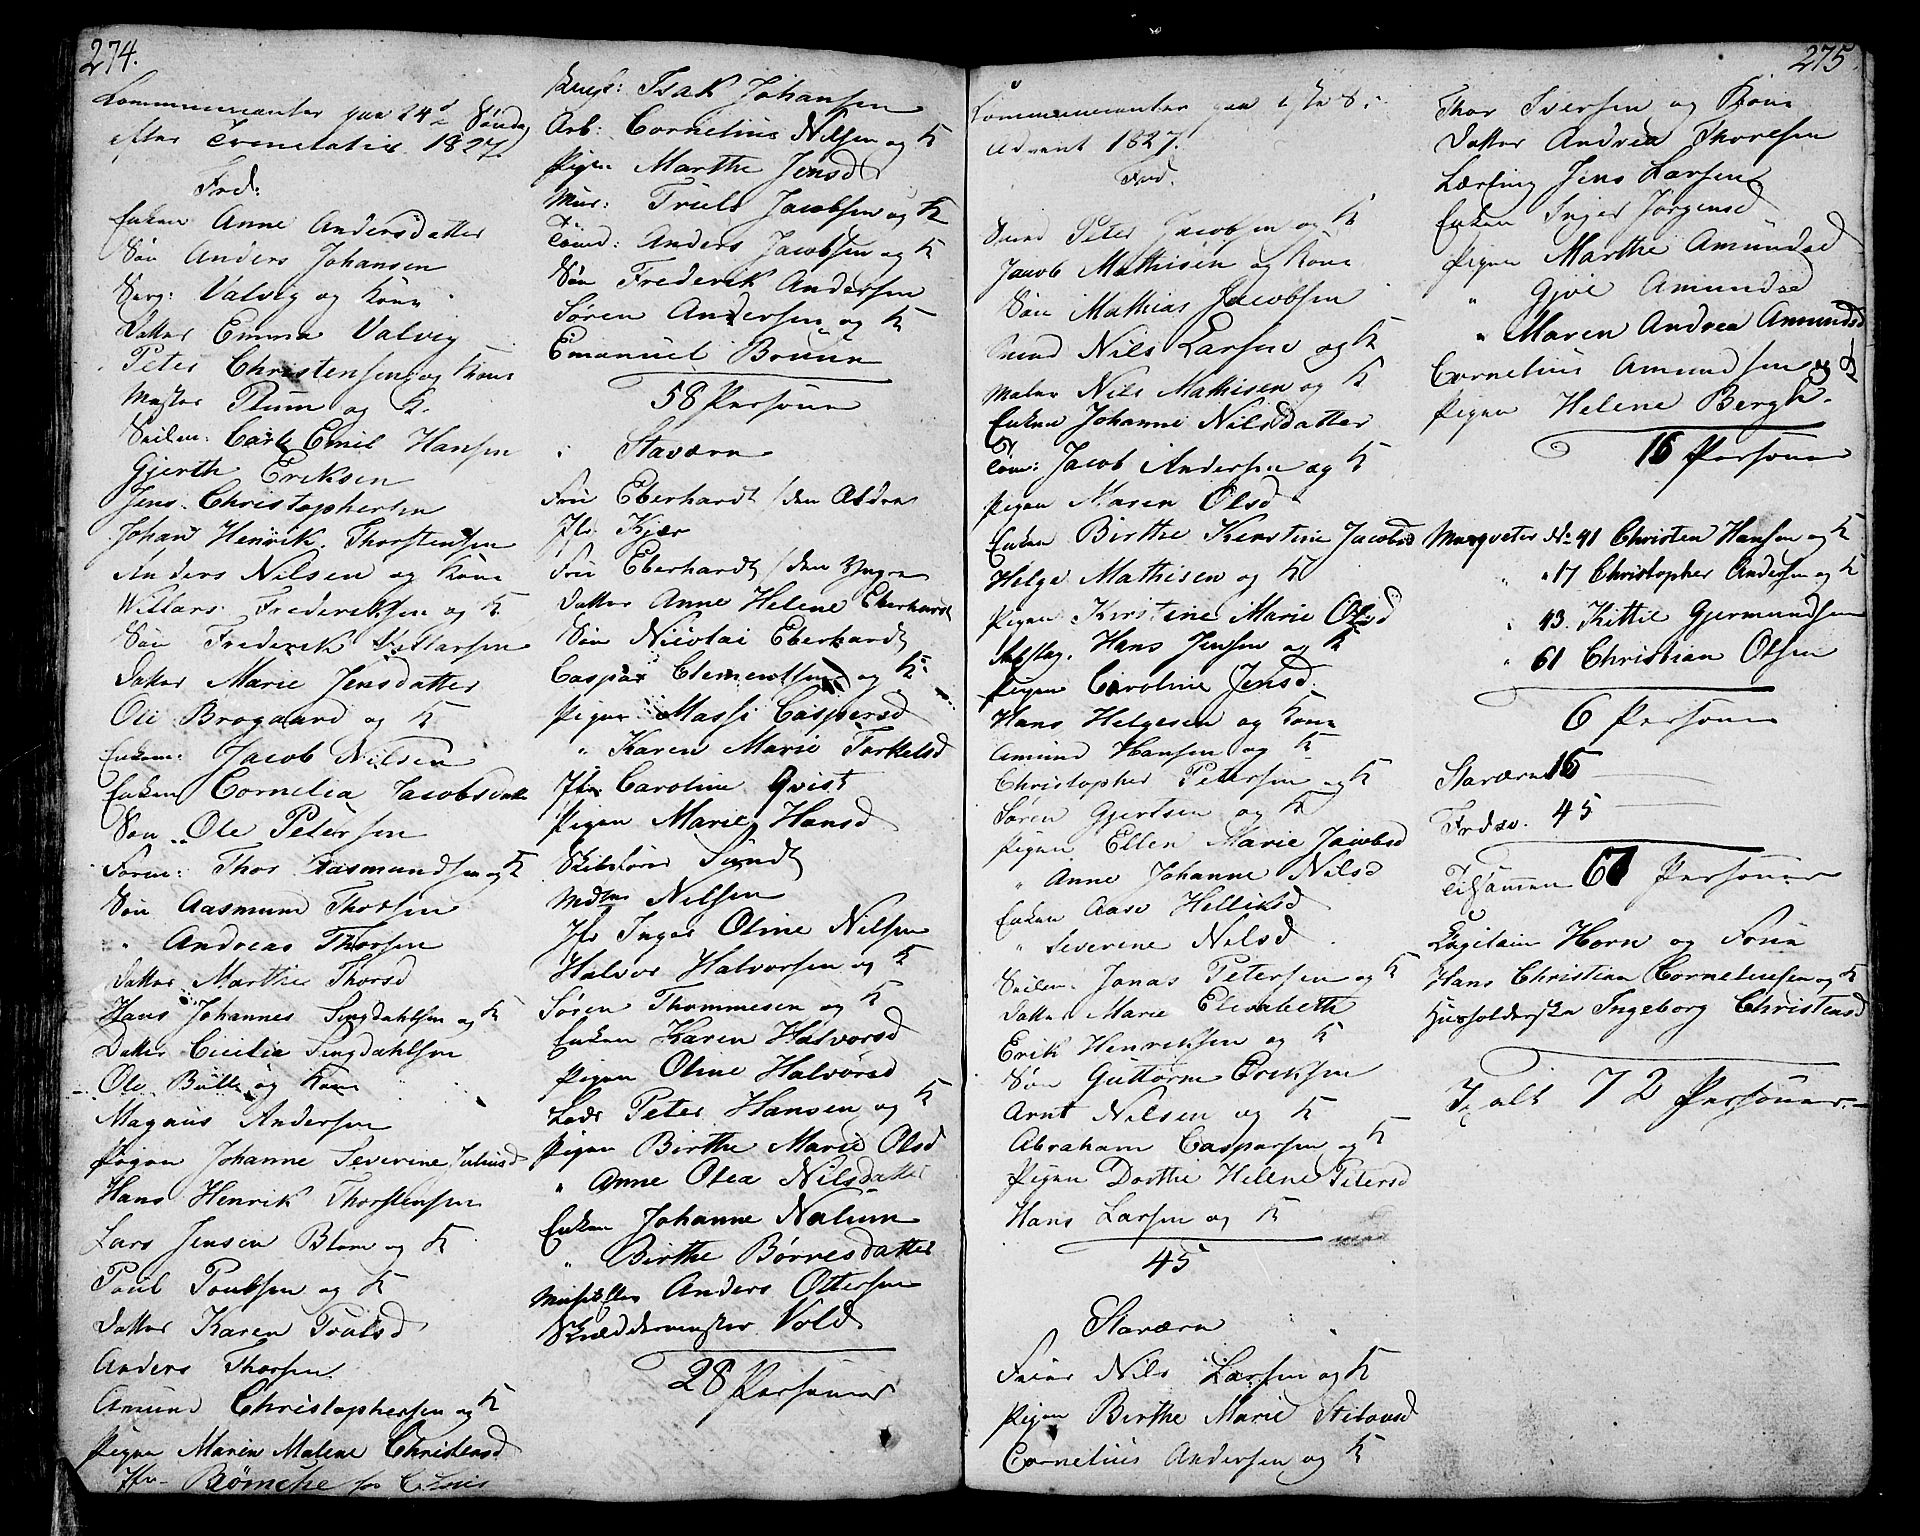 274.
Communicanter paa 24de Søndag
efter Trinitatis 1827.
Frd:
Enken Anne Andersdatter
Søn Anders Johansen
Serg: Valvig og Kone
Datter Emma Valvig
Peter Christensen og Kone
Mester Plum og K.
Seilm: Carl Emil Hansen
Gjerth Eriksen
Jens Christophersen
Johan Henrik Thorstensen
Anders Nilsen og Kone
Willars Frederiksen og K
Søn Frederik Willarsen
Datter Marie Jensdatter
Ole Brogaard og K
Enkem: Jacob Nilsen
Enken Cornelia Jacobsdatt
Søn Ole Petersen
Foren: Thor Aasmundsen og K
Søn Aasmund Thorsen
" Andreas Thorsen
Datter Marthe Thorsd
Hans Johannes Lingdahlsen og K
Datter Cicilia Lingdahlsen
Ole Bull og Kone
Magnus Andersen
Pigen Johanne Severine Juliusd
Hans Henrik Thorstensen
Lars Jensen Blom og K
Poul Poulsen og K
Datter Karen Poulsd
Anders Thorsen
Amund Christophersen og K
Pigen Maren Malene Christensd
Jfr Bømche
Isak Johansen
Arb: Cornelius Nilsen og K
Pigen Marthe Jensd
Mur: Truls Jacobsen og K
Tømd: Anders Jacobsen og K
Søn Frederik Andersen
Søren Andersen og K
Emanuel Bruun
58 Personer
Staværn
Frue Eberhardt / den Ældre
Jfr Kjær
Frue Eberhardt / den Yngre
Datter Anne Helene Eberhardt
Søn Nicolai Eberhardt
Caspar Clementsen og K
Pigen Massi Caspersd
" Karen Marie Tarkelsd
Jfr Caroline Qvist
Pigen Marie Hansd
Skibsfører Syndt
Nilsen
Jfr Inger Oline Nilsen
Halvor Halvorsen og K
Søren Thommesen og K
Enken Karen Halvorsd
Pigen Oline Halvorsd
Lods Peter Hansen og K
Pigen Birthe Marie Olsd
" Anne Olea Nilsdatter
Enken Johanne Nalum
" Birthe Børresdatter
Anders Ottersen
Skreddermester Vold
28 Personer
275
Communicanter paa 1ste S. i
Advent 1827.
Frd.
Smed Peter Jacobsen og K
Jacob Mathisen og Kone
Søn Mathias Jacobsen
Smed Nils Larsen og K
Maler Nils Mathisen og K
Enken Johanne Nilsdatter
Tøm: Jacob Andersen og K
Pigen Maren Olsd
Enken Birthe Kirstine Jacobsd
Helge Mathisen og K
Pigen Kirstine Marie Olsd
Hans Jensen og K
Pigen Caroline Jensd.
Hans Helgesen og Kone
Amund Hansen og K
Christopher Petersen og K
Søren Gjertsen og K
Pigen Ellen Marie Jacobsd
" Anne Johanne Nilsd
Enken Aase Helliksd
" Severine Nilsd
Seilm. Jonas Petersen og K
Datter Marie Elisabeth
Erik Henriksen og K
Søn Guttorm Eriksen
Arnt Nilsen og K
Abraham Casparsen og K
Pigen Dorthe Helene Petersd
Hans Larsen og K
45
Staværn
Nils Larsen og K
Pigen Birthe Marie
Cornelius Andersen og K
Thor Iversen og Kone
Datter Andrea Thorsen
Lærling Jens Larsen
Enken Inger Jørgensd
Pigen Marthe Amundsd
" Gjøe Amundsd
" Maren Andrea Amundsd
Cornelius Amundsen og K
Pigen Helene Bergh.
16 Personer
No 41 Christen Hansen og K
" " 17 Christopher Andersen og K
" 43 Kittil Gjermundsen
" 61 Christian Olsen
6 Personer
Staværn 16
Frdsv. 45
Tilsammen 67 Personer
Capitain Horn og Frue
Hans Christian Corneliussen og K
Husholderske Ingeborg Christensd
I alt 72 Personer.